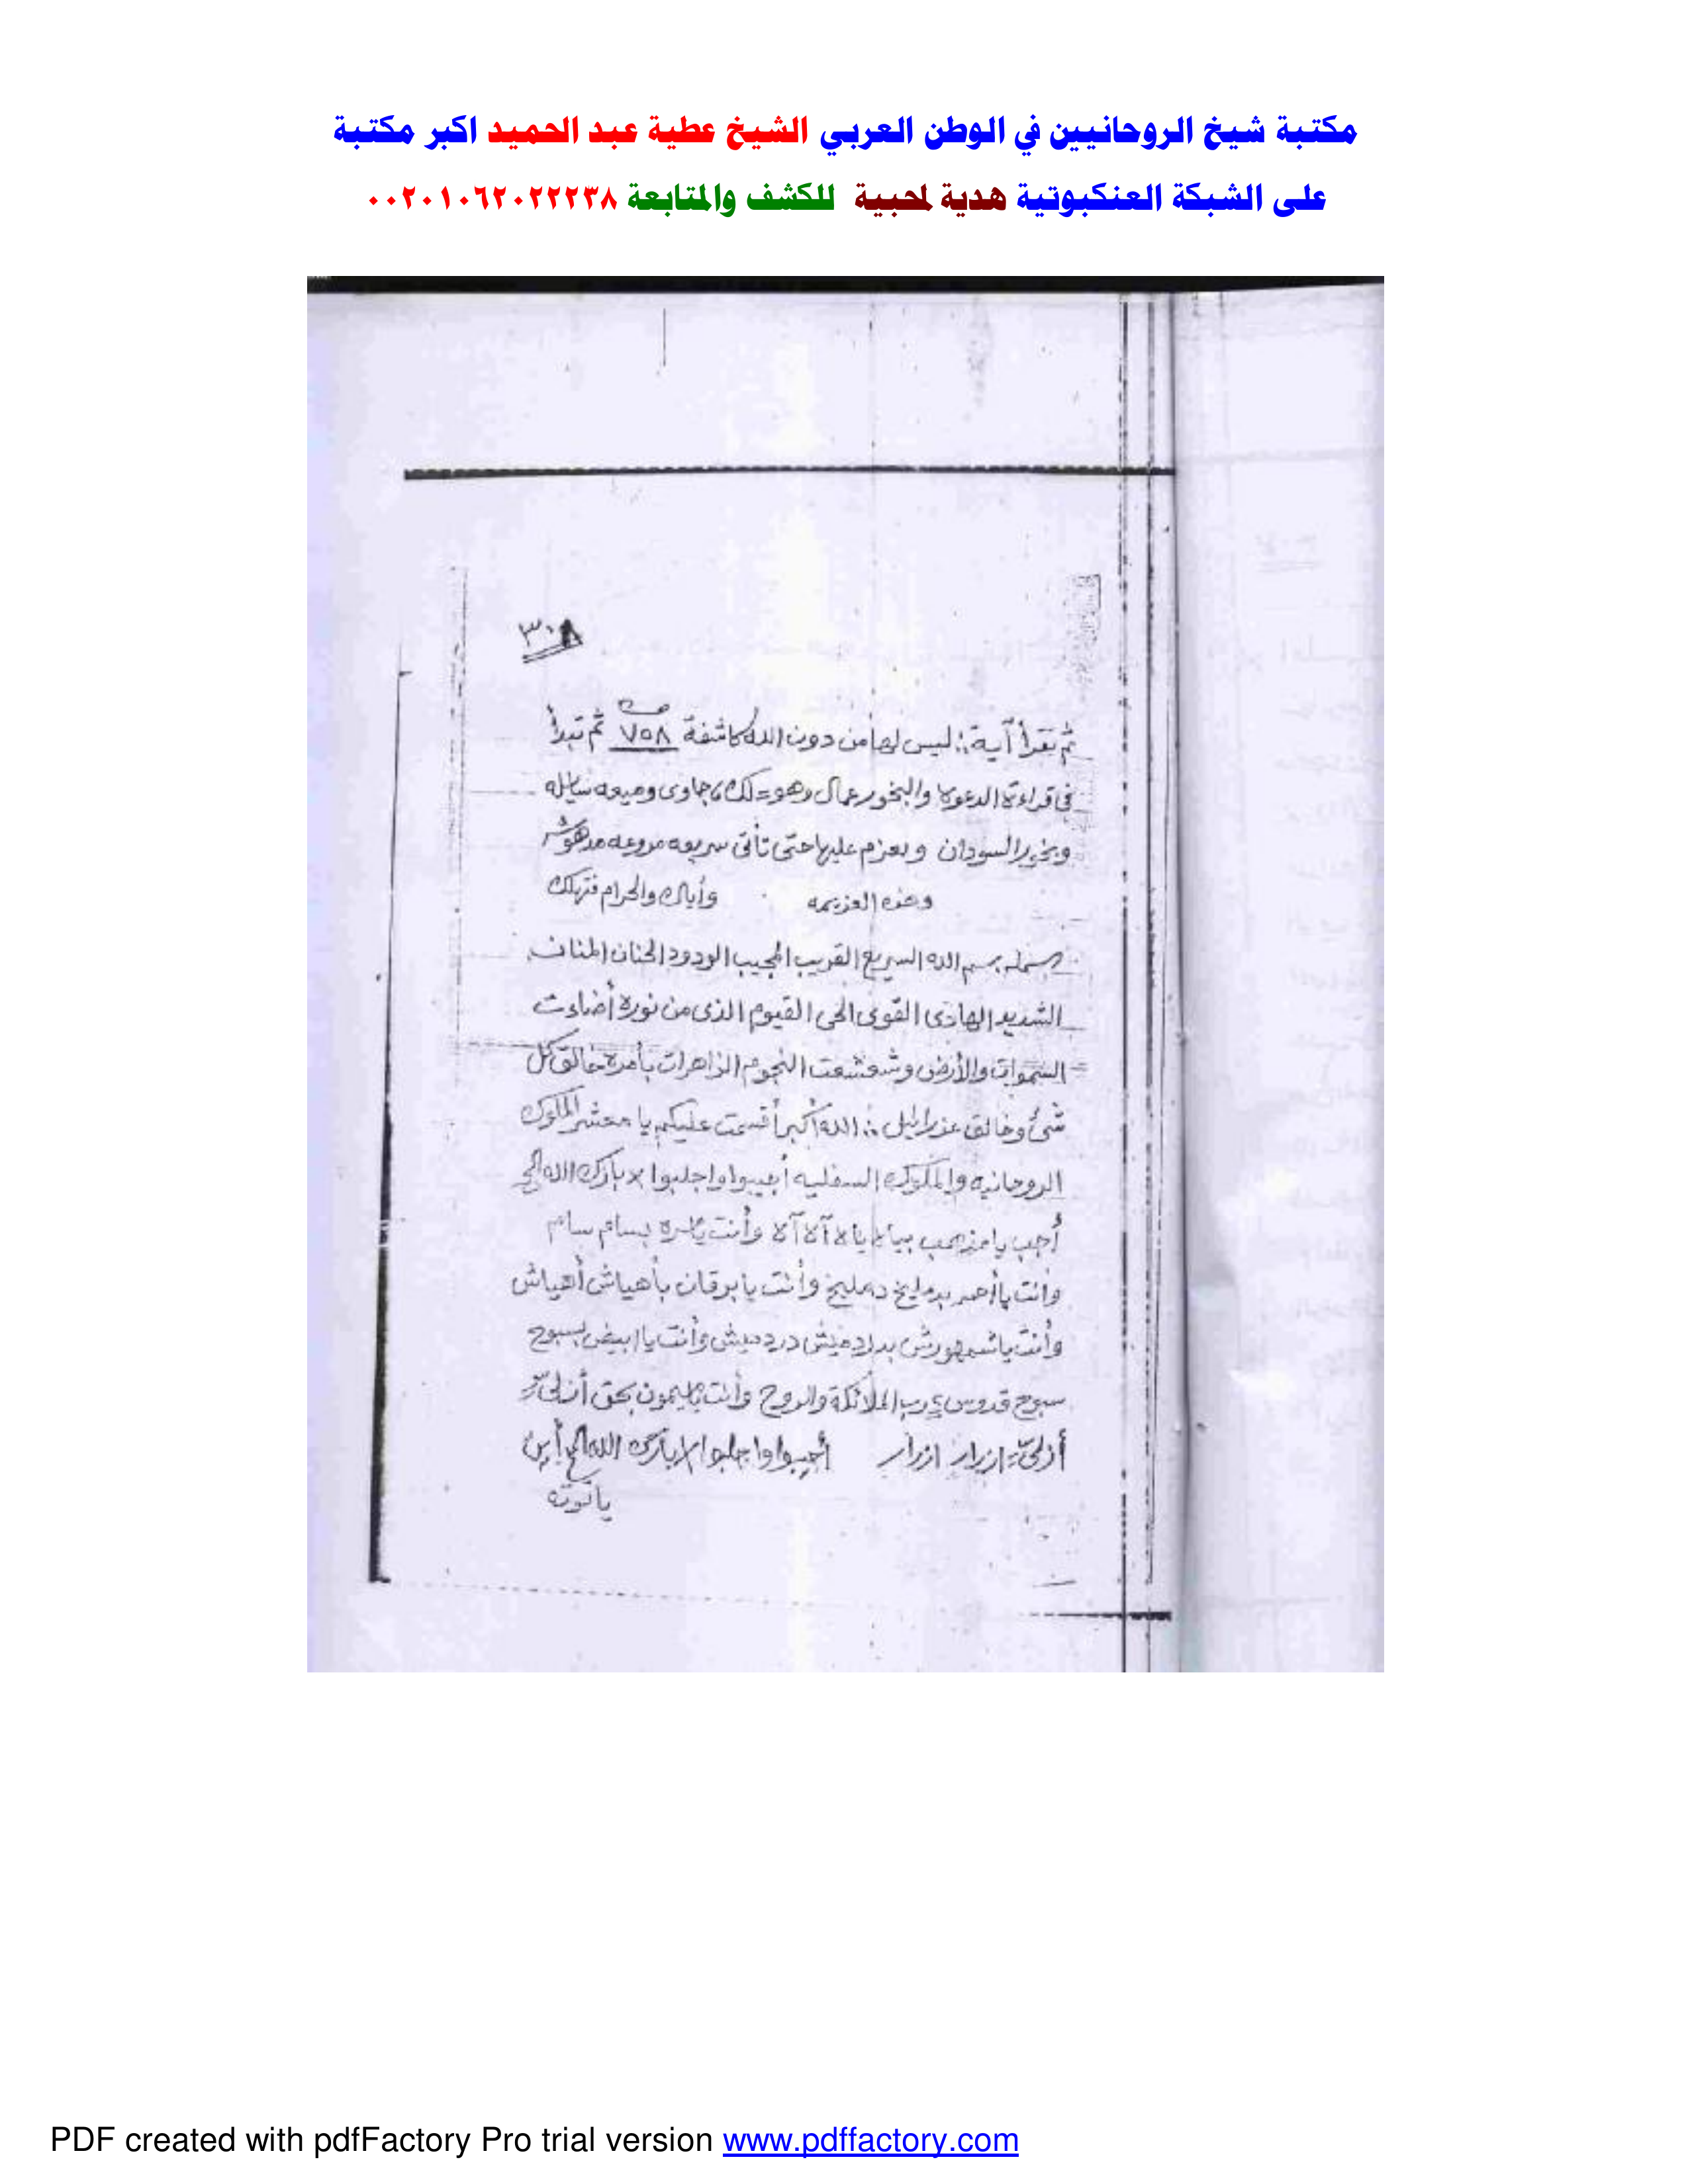 مكتبة شيخ الروحانيين في الوطن العربي الشيخ عطية عبد الحميد اكبر مكتبة
على الشبكة العنكبوتية هدية لمحبية للكشف والمتابعة ٠٠٢٠١٠٦٢٠٢٢٢٣٨
٣٠٨
ثم تقرأ آية : ليس لها من دون الله كاشفة ٧٥٨ ثم تبدأ
فى قراءة الدعوة والبخور عمال وهو جاوى وميعه سايله
وبخور السودان وتعزم عليها حتى تأتى سريعه مروعه
وهذه العزيمه وأياك والحرام فتهلك
بسم الله السريع القريب المجيب الودود الحنان المنان
الشديد الهادى القوى الحى القيوم الذى من نوره أضاءت
السموات والأرض وشعشعت النجوم الزاهرات بأمره خالق كل
شئ وخالق عزرائيل : الله أكبر أقسمت عليكم يا معشر الملوك
الروحانيه والملوك السفليه أجيبوا واجلبوا لا بارك الله
أجب يا مذهب وأنت يامره بسام سام
وأنت يا أحمر دمليخ وأنت يا برقان بأهياش أهياش
وأنت يا شمهورش دردميش وأنت يا ابيض بسبوح
سبوح قدوس رب الملائكة والروح وأنت ياميمون بحق أزلى
أزلى ازرار ازرار أجيبوا واجلبوا لا بارك الله أين
ياتوته
PDF created with pdfFactory Pro trial version www.pdffactory.com